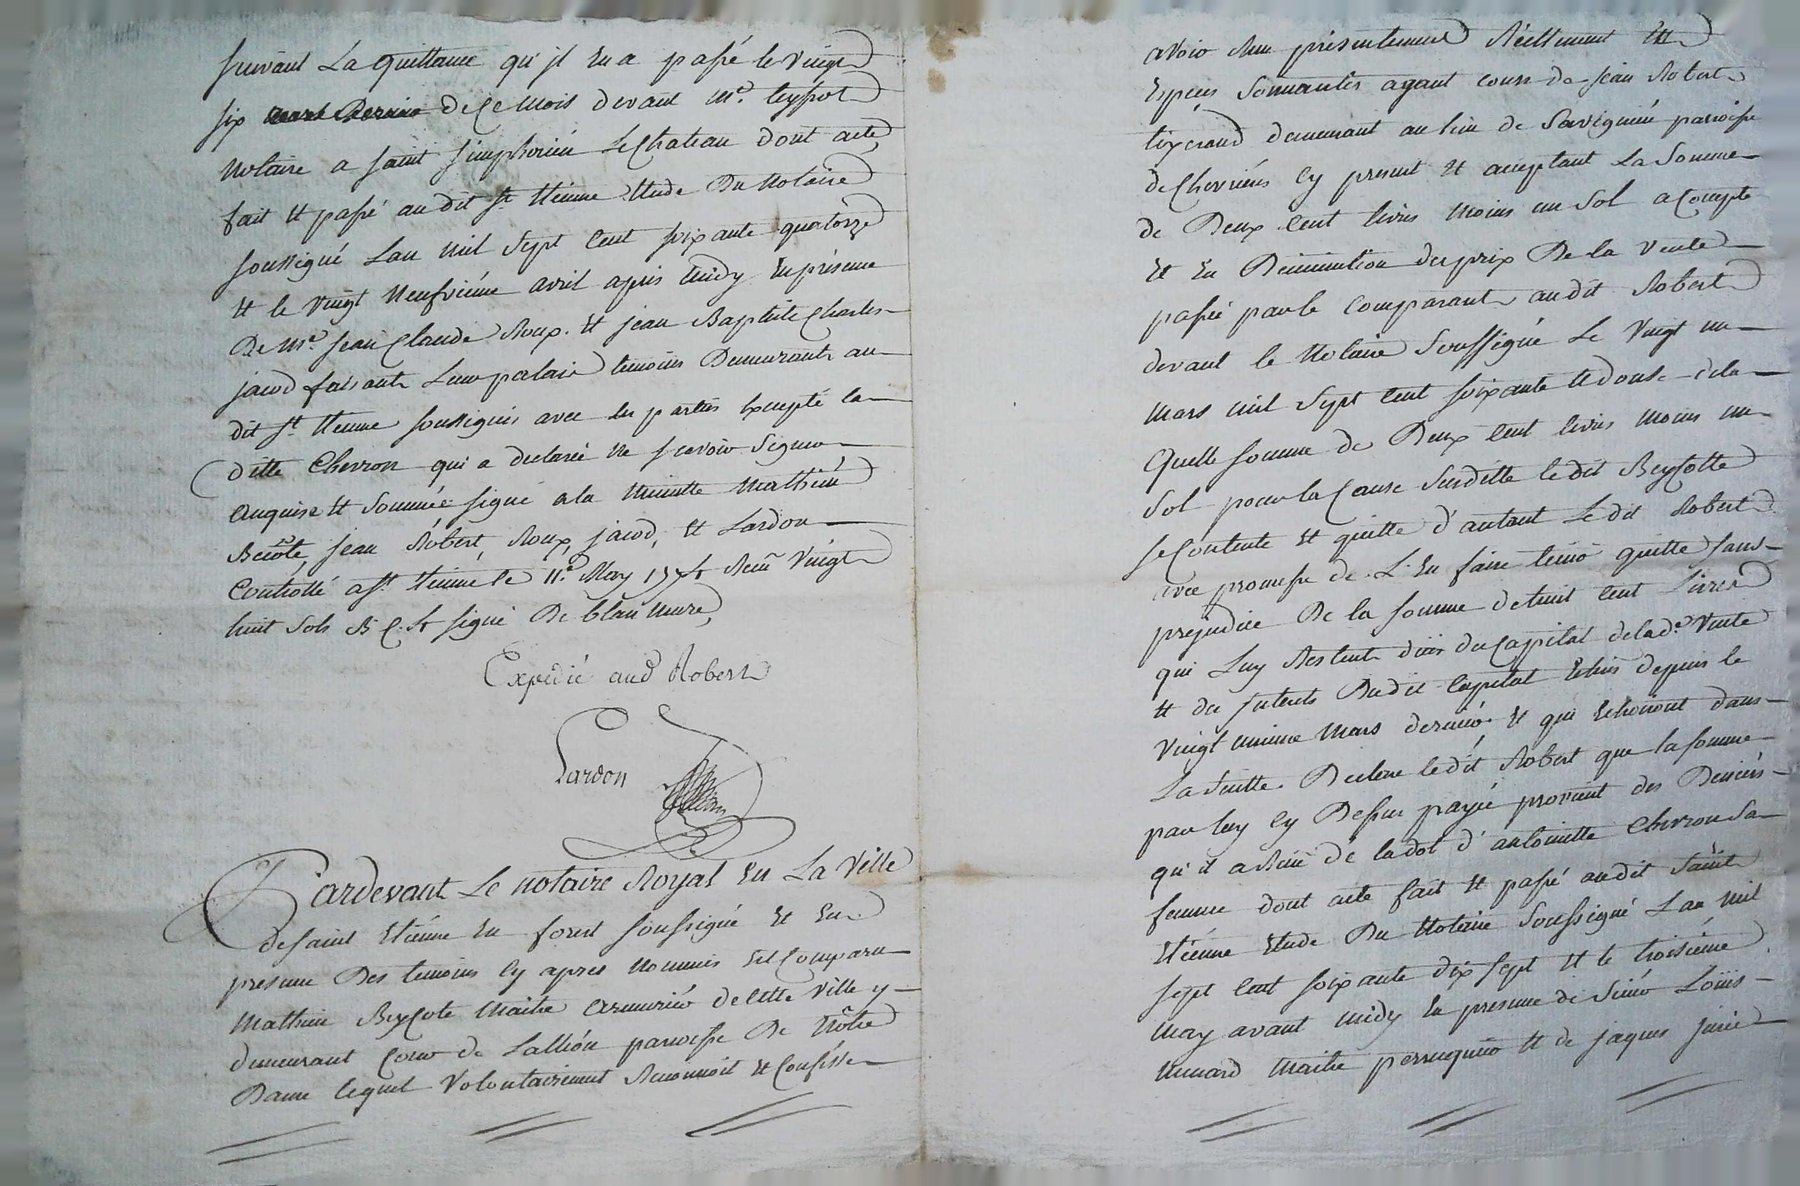 suivant La quittance qu'jl En a passé le vingt
six de Ce mois devant Me. teyssot
Notaire a saint simphorien Le Chateau dont acte
fait Et passé au dit St. Etienne Etude Du Notaire
soussigné Lan mil sept Cent soixante quatorze
Et le vingt Neufviéme avril apres midy En présence
De Me. Jean Claude Roux. Et jean Baptiste Charles
jacod faisants Leur palais temoins Demeurants au
dit St. Etienne soussignés avec les parties Excepté la
ditte Chevron qui a declaré Ne scavoir signer
Enquise Et Sommée signé ala Minutte Mathieu
Beicôte, jean Robert, Roux, jacod, Et Lardon
Controllé a St. Etienne le 11e. May 1774 Reçu vingt
huit sols signé De blaumure,
Expedié aud Robert
Lardon
Pardevant Le notaire Royal En La Ville
de saint Etienne En forest soussigné Et En
presence Des temoins Cy apres Nommés Est Comparu
Mathieu Beycote Maitre armurier de Cette Ville y
demeurant Cour de Lallion paroisse De Nôtre
Dame lequel Volontairement Reconnoit Et Confesse
avoir Reçu présentement Réellement Et
Especes Sonnantes ayant cours de Jean Robert
tixerand demeurant au lieu de Savignieu paroisse
de Chevriéres Cy present Et acceptant La Somme
de Deux Cent livres Moins un sol a Compte
Et En Diminution du prix De la Vente
passée par le Comparant audit Robert
devant le Notaire Soussigné Le Vingt un
Mars mil Sept Cent soixante Et douse dela
quelle somme de Deux Cent livres moins un
Sol pour la Cause Susditte le dit Beycotte
se Contente Et quitte d'autant Le dit Robert
avec promesse de L'En faire tenir quitte sans
prejudice De la somme de huit Cent Livres
qui Luy Restent düs du Capital de lad. Vente
Et des jnterets Du dit Capital Echus depuis le
Vingt uniéme Mars dernier Et qui Echeront dans
La suitte. Declare ledit Robert que la somme
par luy Cy Dessus payée provient des Deniers
qu'il a Reçu de la dot d'antoinette Chevron Sa
femme dont acte fait Et passé audit Saint
Etienne Etude Du Notaire Soussigné Lan Mil
sept Cent soixante dix sept Et le troisiéme
May avant midy En presence de Sieur Loüis
Maitre perruquier Et de jaques